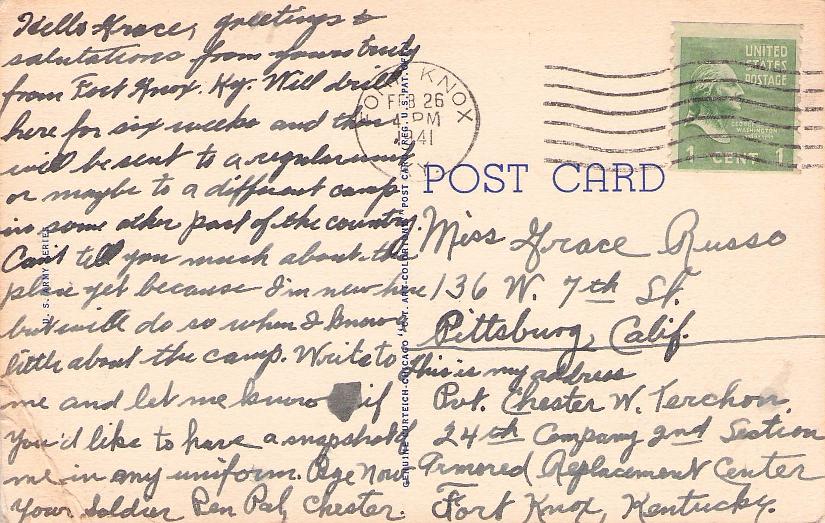 Hello Grace, greetings &
salutations from yours truly
from Fort Knox. Ky. Will drill
here for six weeks and then
will be sent to a regular army
or maybe to a different camp
in some other part of the country.
Can't tell you much about the
place yet because I'm new here
but will do so when I know
little about the camp. Write to
me and let me know if
You'd like to have a snapshot of
me in any uniform. Bye Now
Your Soldier Pen Pal, Chester.
U. S. ARMY SERIES
GENUINE CURTEICH-CHICAGO "C.T. ART-COLORTONE" POST CARD (REG. U.S. PAT. OFF.)
FORT KNOX
FEB 26
PM
41
UNITED
STATES
POSTAGE
GEORGE
WASHINGTON
1 CENT 1
POST CARD
Miss Grace Russo
136 W. 7th St.
Pittsburg, Calif.
This is my address
Pvt. Chester W. Terchon
24th Company 2nd Section
Armored Replacement Center
Fort Knox, Kentucky.